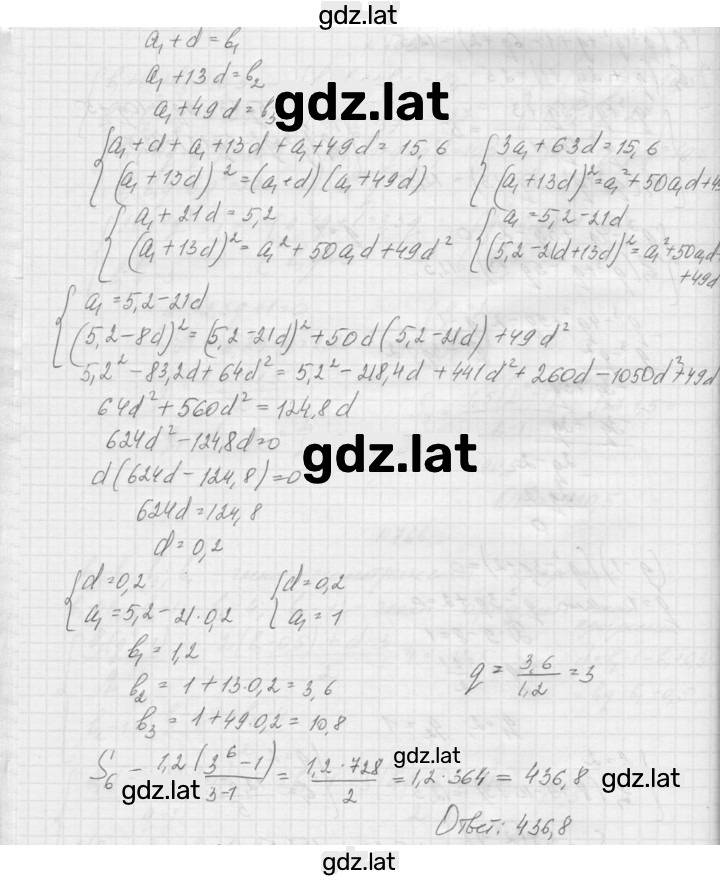 gdz.lat
a₁ + d = b₁
a₁ + 13d = b₂
a₁ + 49d = b₃
gdz.lat
{ a₁ + d + a₁ + 13d + a₁ + 49d = 15,6 { 3a₁ + 63d = 15,6
(a₁ + 13d)² = (a₁ + d)(a₁ + 49d) (a₁ + 13d)² = a₁² + 50a₁d + 49
{ a₁ + 21d = 5,2 { a₁ = 5,2 - 21d
(a₁ + 13d)² = a₁² + 50a₁d + 49d² (5,2 - 21d + 13d)² = a₁² + 50a₁d +
+ 49d
{ a₁ = 5,2 - 21d
(5,2 - 8d)² = (5,2 - 21d)² + 50d(5,2 - 21d) + 49d²
5,2² - 83,2d + 64d² = 5,2² - 218,4d + 441d² + 260d - 1050d² + 49d
64d² + 560d² = 124,8d
624d² - 124,8d = 0
gdz.lat
d(624d - 124,8) = 0
624d = 124,8
d = 0,2
{ d = 0,2 { d = 0,2
a₁ = 5,2 - 21·0,2 a₁ = 1
b₁ = 1,2
b₂ = 1 + 13·0,2 = 3,6 q = 3,6/1,2 = 3
b₃ = 1 + 49·0,2 = 10,8
gdz.lat
S₆ = 1,2(3⁶ - 1)/3-1 = 1,2·728/2 = 1,2·364 = 436,8
gdz.lat gdz.lat
Ответ: 436,8
gdz.lat